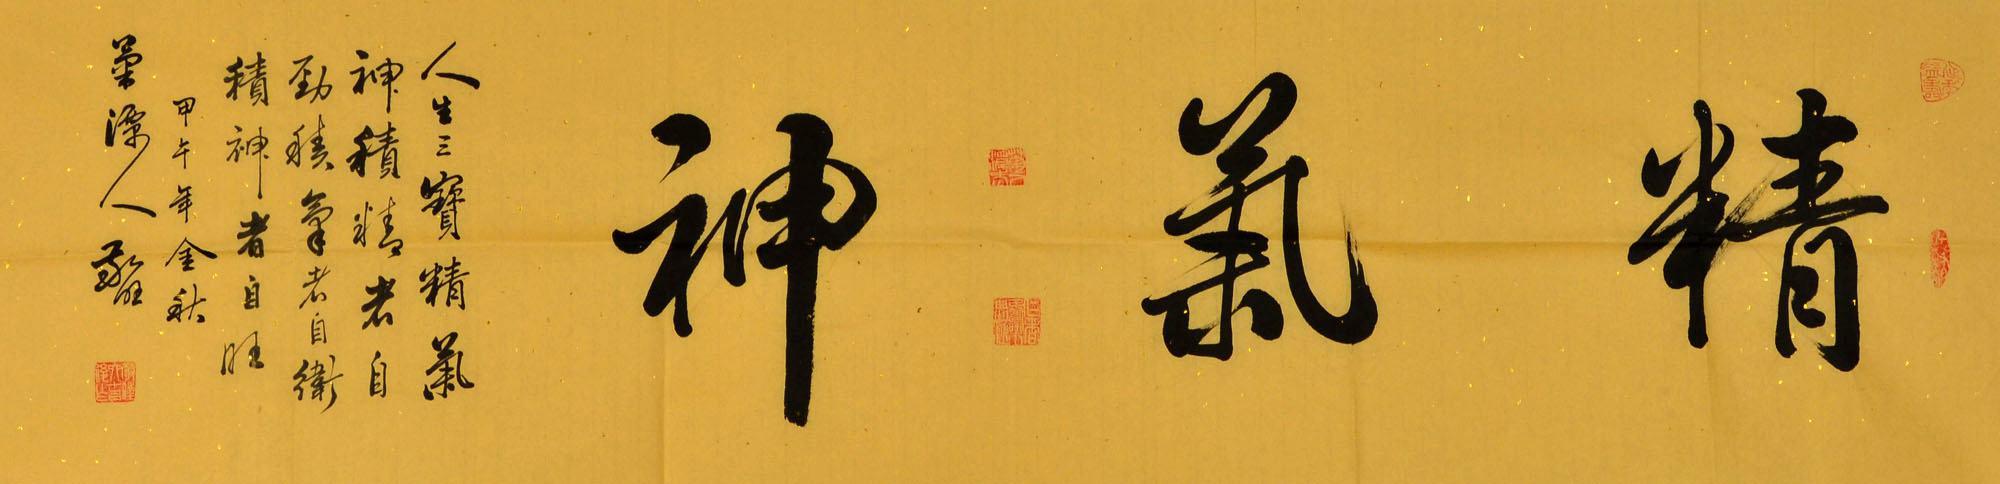 精氣神
人生三寶精氣
神積精者自
勁積氣者自衛
積神者自旺
甲午年金秋
菊潭人